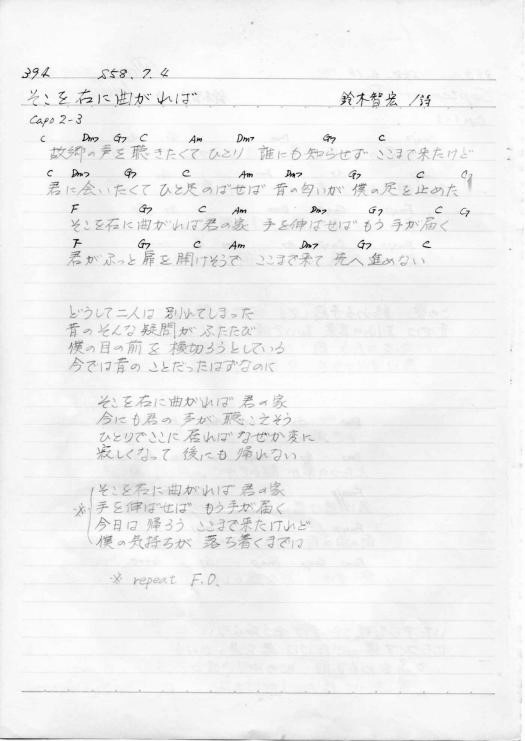 394 S58.7.4
そこを右に曲がれば 鈴木智宏/詩
Capo 2-3
C Dm7 G7 C Am Dm7 G7 C
故郷の声を聴きたくて ひとり 誰にも知らせず ここまで来たけど
C Dm7 G7 C Am Dm7 G7 C G7
君に会いたくて ひと足のばせば 昔の匂いが 僕の足を止めた
F G7 C Am Dm7 G7 C G7
そこを右に曲がれば君の家 手を伸ばせば もう 手が届く
F G7 C Am Dm7 G7 C
君がふっと扉を開けそうで ここまで来て 先へ進めない
どうして二人は 別れてしまった
昔のそんな疑問が ふたたび
僕の目の前を 横切ろうとしている
今では昔の ことだったはずなのに
そこを右に曲がれば 君の家
今にも君の 声が 聴こえそう
ひとりでここに 居ればなぜか変に
寂しくなって 後にも 帰れない
そこを右に曲がれば 君の家
※ 手を伸ばせば もう手が届く
今日は 帰ろう ここまで来たけれど
僕の気持ちが 落ち着くまでは
※ repeat F.O.